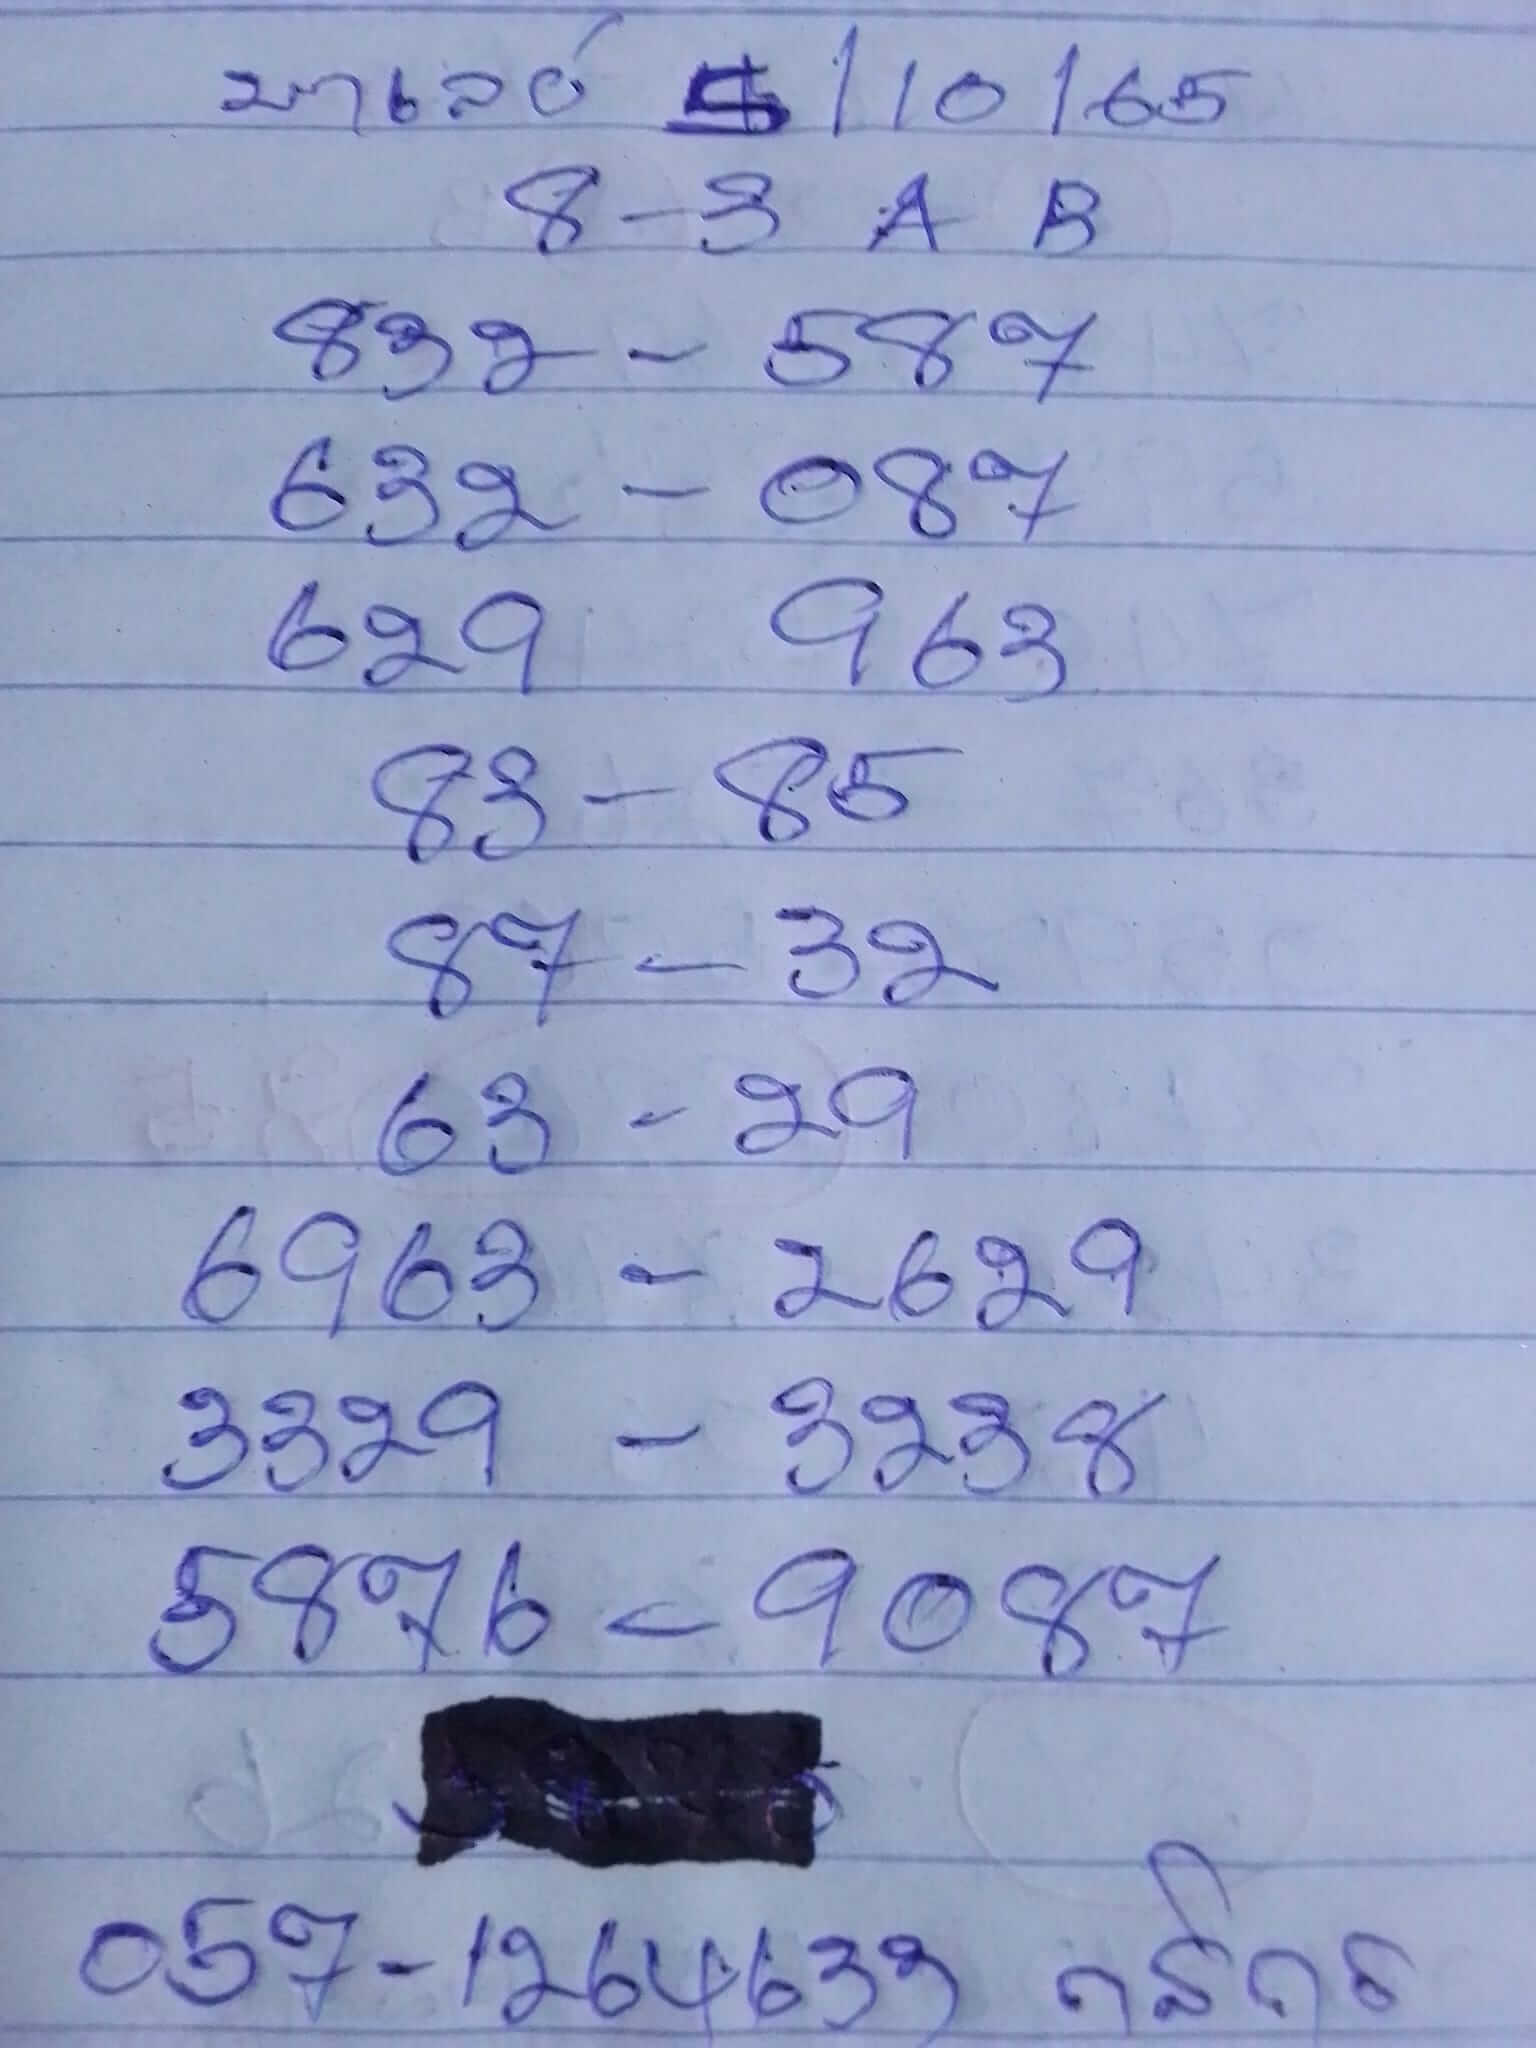 มาเลย์ 5/10/65
8-3 A B
832 - 587
632 - 087
629 963
83 - 85
87 - 32
63 - 29
6963 - 2629
3329 - 3238
5876 - 9087
057-1264633 กสิกร